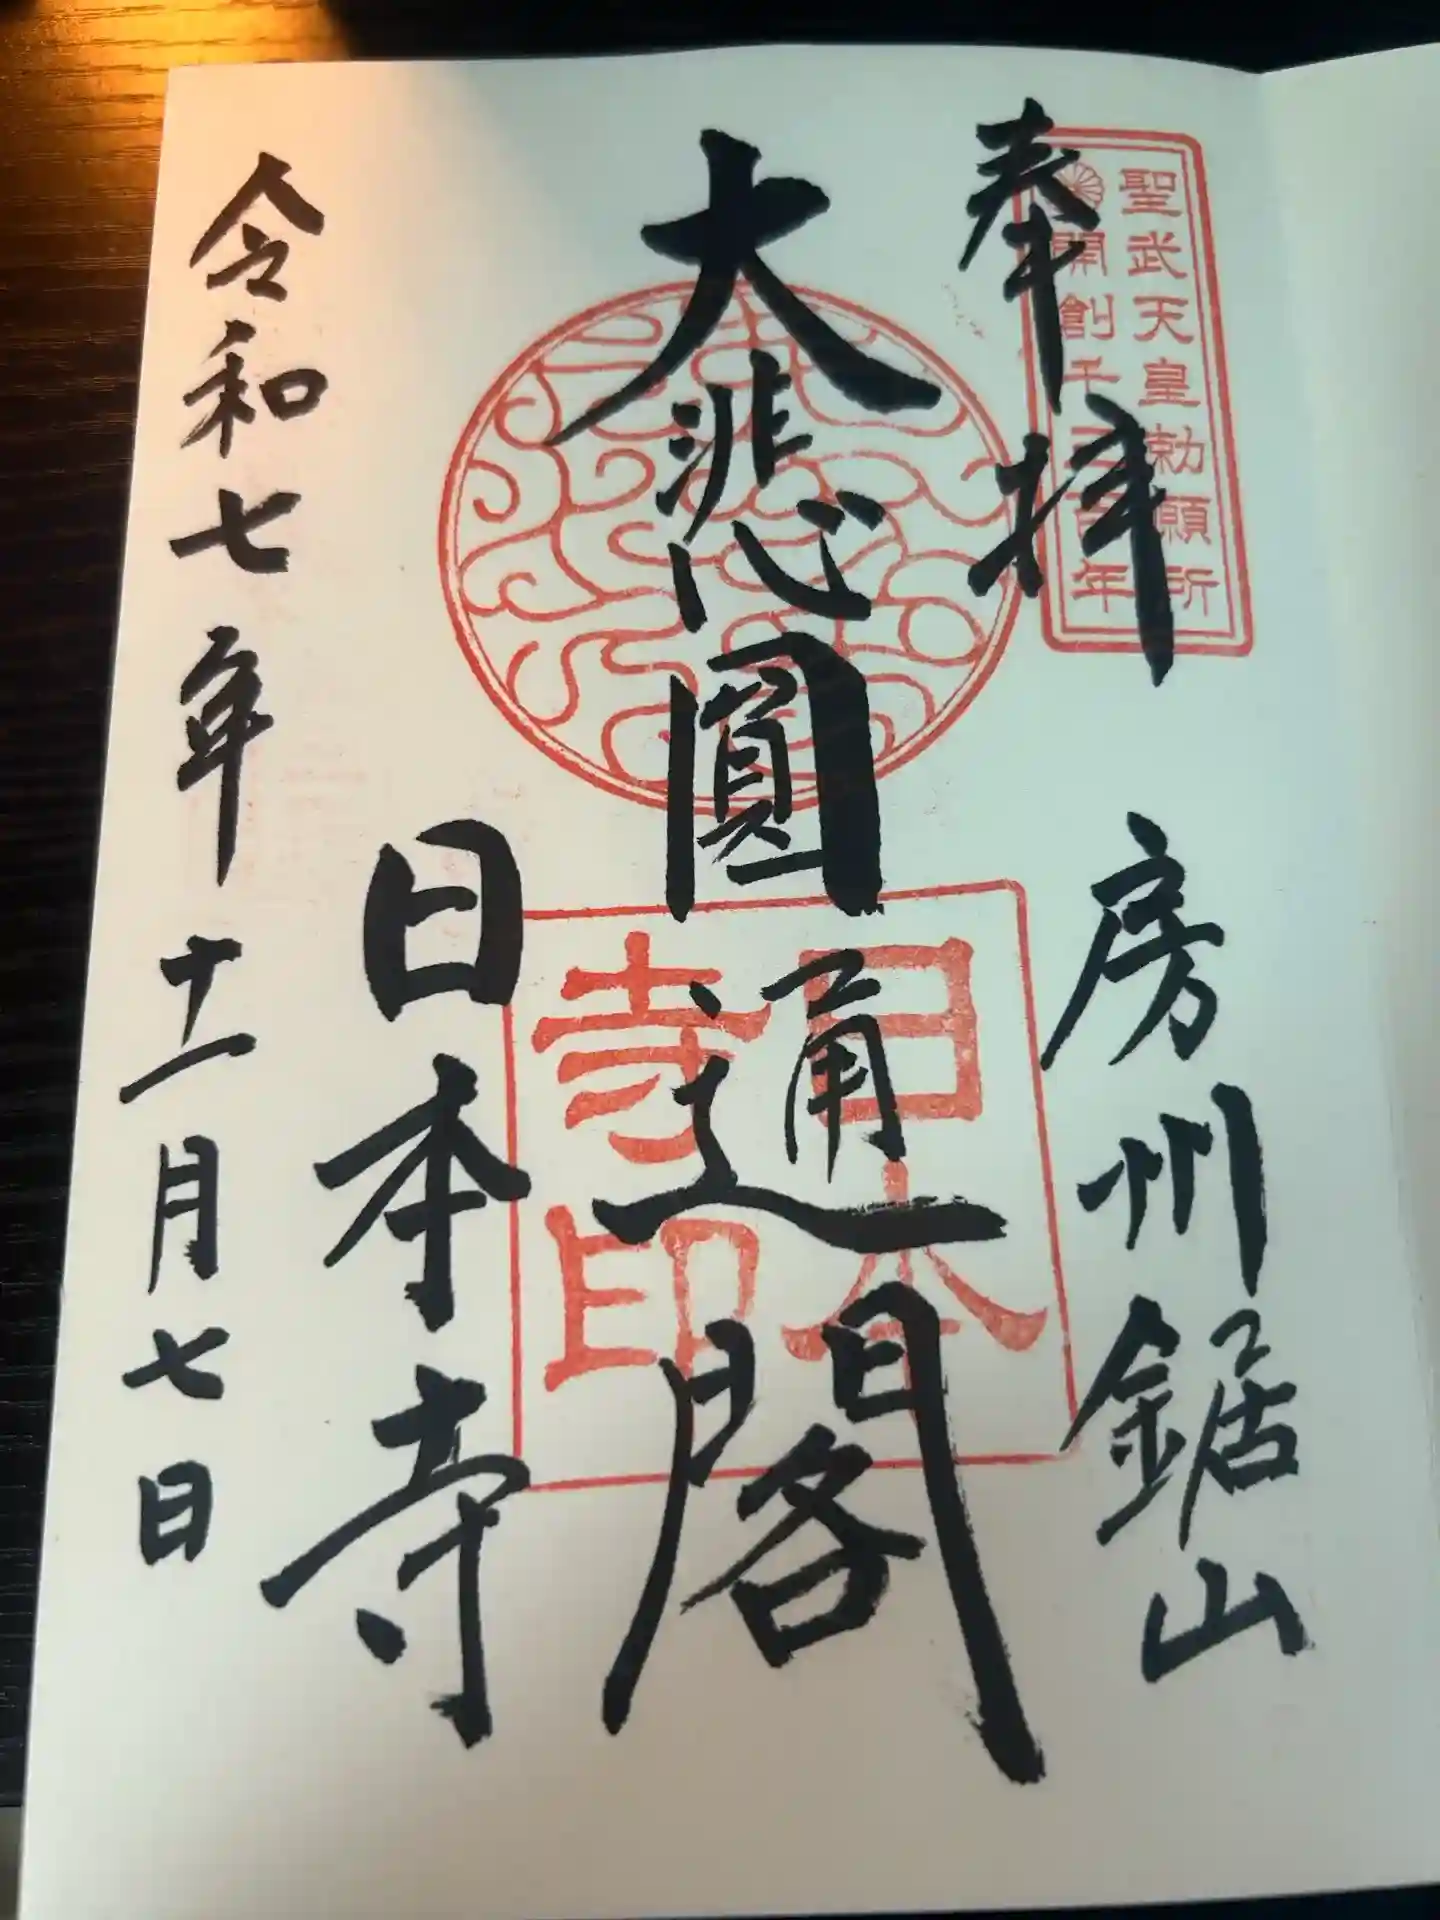 奉拝
聖武天皇勅願所
開創千三百年
房州鋸山
大悲圓通閣
日本寺印
日本寺
令和七年十一月七日